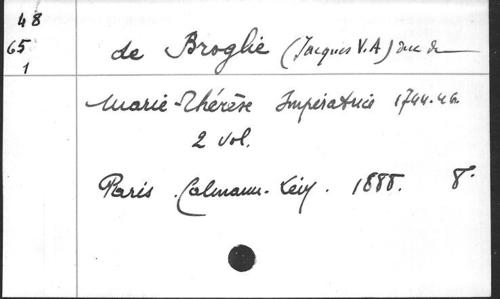 48
65
1
de Broglie (Jacques V. A) duc de
Marie-Thérèse Impératrice 1744-46.
2 vol.
Paris. Calmann-Lévy. 1888. 8°.